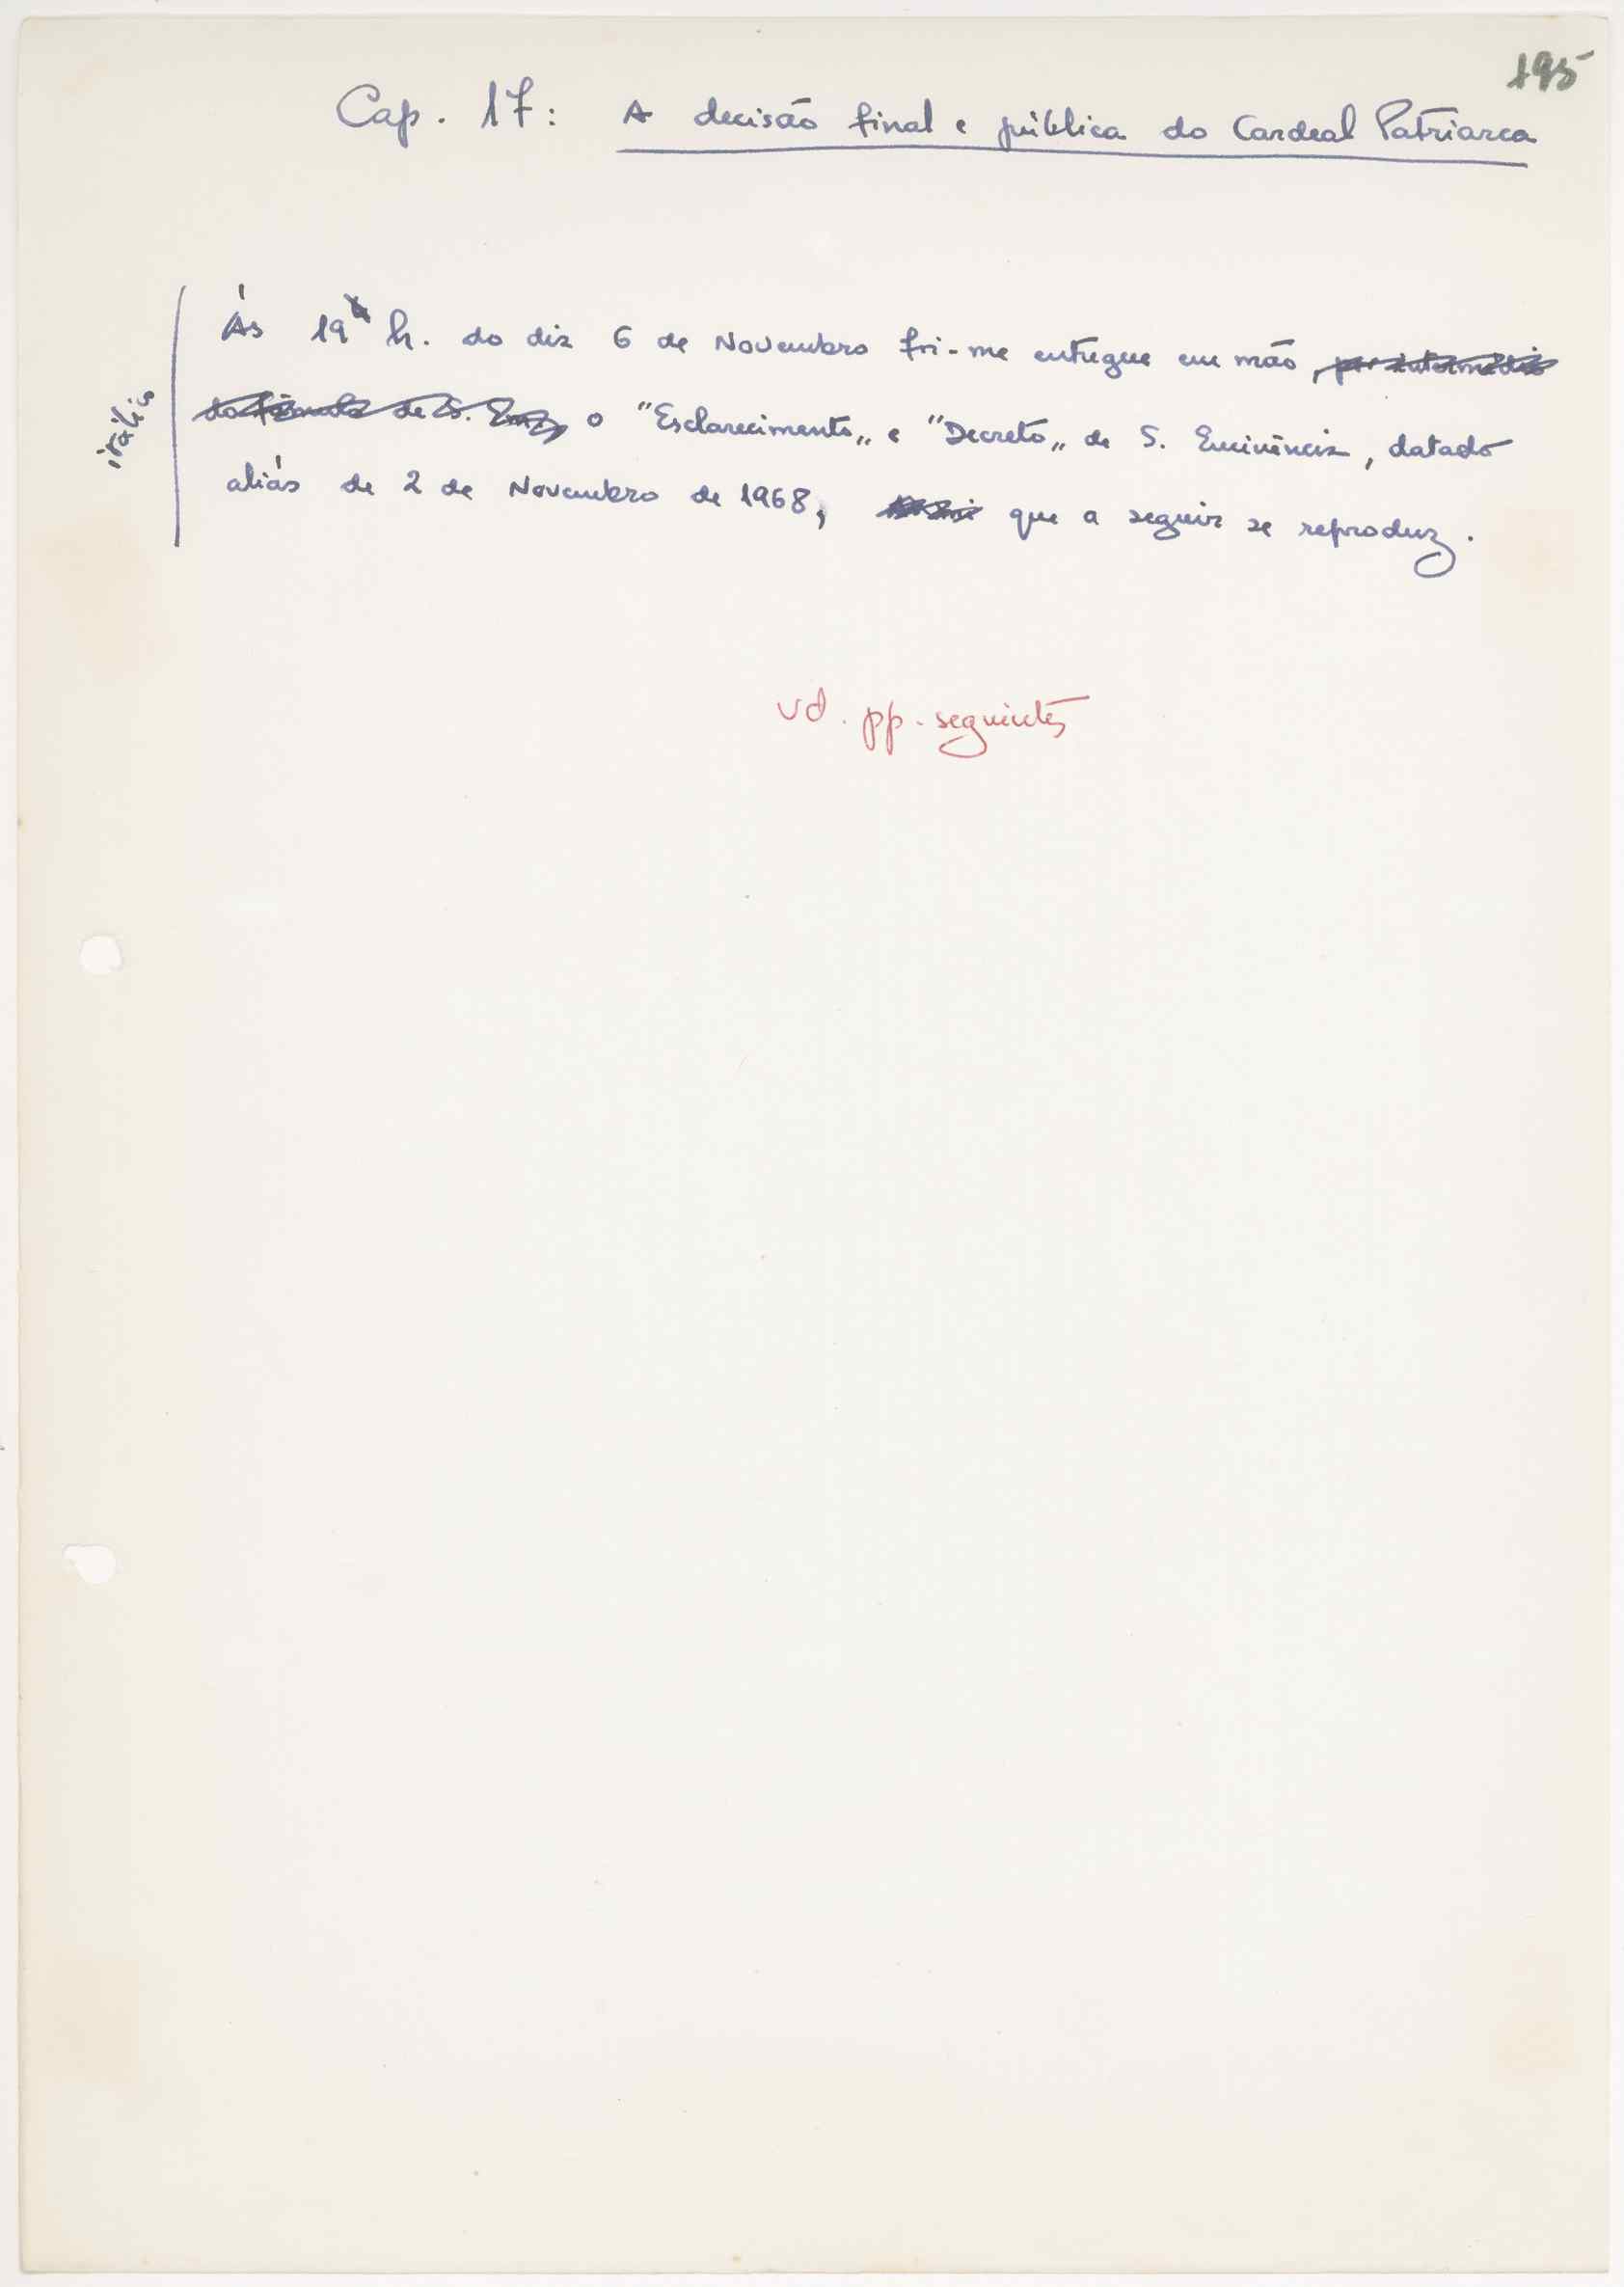 195
Cap. 17: A decisão final e pública do Cardeal Patriarca
Às 19 h. do dia 6 de Novembro foi-me entregue em mão, por intermédio
de S. o "Esclarecimento" e "Decreto" de S. Eminência, datado
itálico
aliás de 2 de Novembro de 1968, que a seguir se reproduz.
vd. pp. seguintes